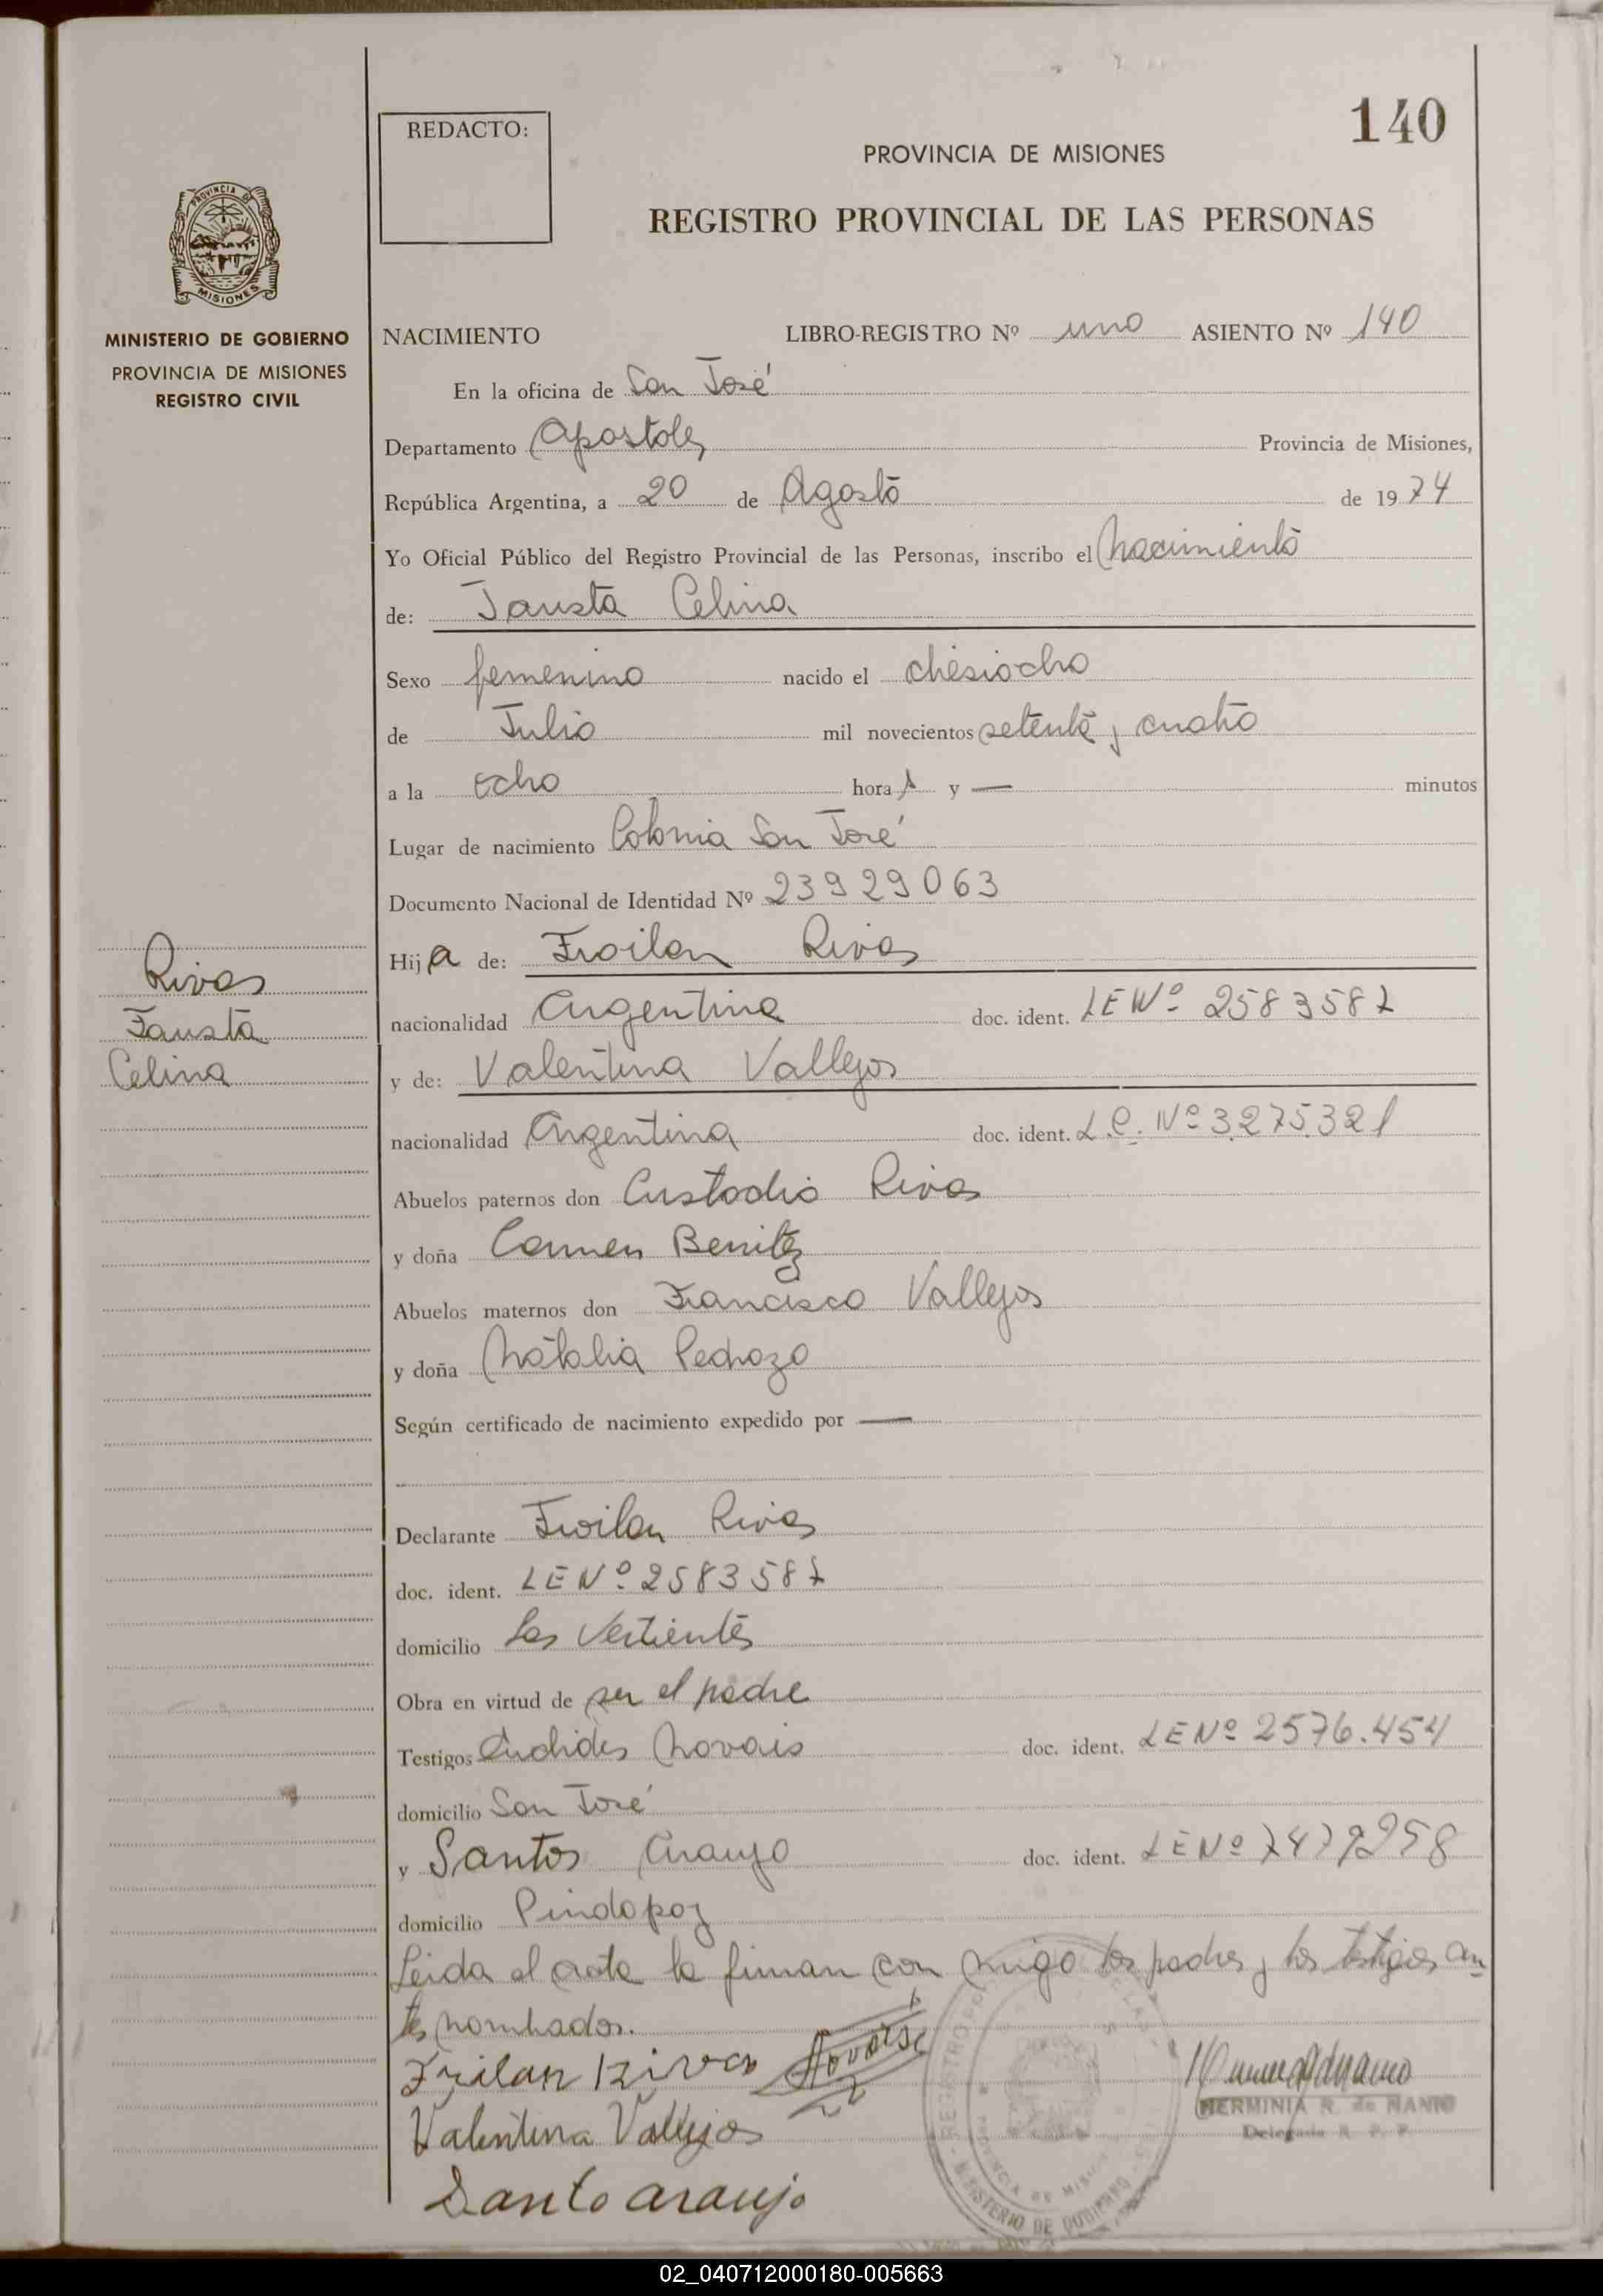 140
REDACTO:
PROVINCIA DE MISIONES
REGISTRO PROVINCIAL DE LAS PERSONAS
PROVINCIA DE
MISIONES
MINISTERIO DE GOBIERNO
PROVINCIA DE MISIONES
REGISTRO CIVIL
NACIMIENTO LIBRO-REGISTRO Nº uno ASIENTO Nº 140
En la oficina de San José
Departamento Apostoles Provincia de Misiones,
República Argentina, a 20 de Agosto de 1974
Yo Oficial Público del Registro Provincial de las Personas, inscribo el nacimiento
de: Fausta Celina
Sexo femenino nacido el diesiocho
de Julio mil novecientos setenta y cuatro
a la ocho hora s y — minutos
Lugar de nacimiento Colonia San José
Documento Nacional de Identidad Nº 23929063
Rivas
Fausta
Celina
Hija de: Froilan Rivas
nacionalidad Argentina doc. ident. LE Nº 2583587
y de: Valentina Vallejos
nacionalidad Argentina doc. ident. L.C. Nº 3.275.321
Abuelos paternos don Custodio Rivas
y doña Carmen Benitez
Abuelos maternos don Francisco Vallejos
y doña Natalia Pedrozo
Según certificado de nacimiento expedido por —
Declarante Froilan Rivas
doc. ident. LE Nº 2583587
domicilio Las Vertientes
Obra en virtud de ser el padre
Testigos Euclides Novais doc. ident. LE Nº 2576.454
domicilio San José
y Santos Araujo doc. ident. LE Nº
domicilio Pindapoy
Leida el acta la firman con migo los padres y los testigos an
tes nombrados.
Frilan Rivas
Valentina Vallejos
Santo araujo
HERMINIA R. de NANIO
Delegada R. P. P.
MINISTERIO DE GOBIERNO
02_040712000180-005663